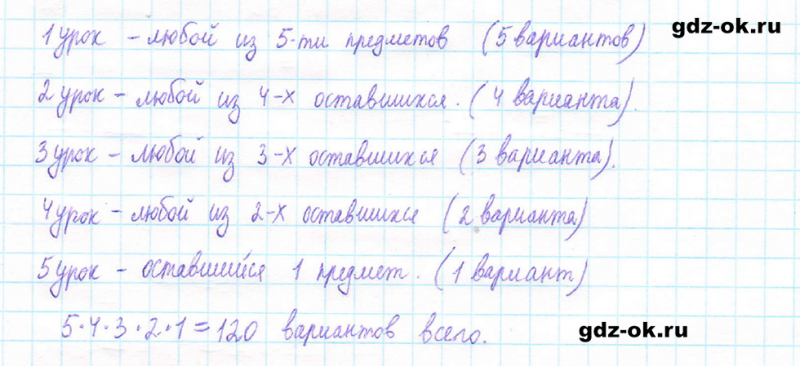 gdz-ok.ru
1 урок – любой из 5-ти предметов (5 вариантов)
2 урок – любой из 4-х оставшихся. (4 варианта).
3 урок – любой из 3-х оставшихся (3 варианта).
4 урок – любой из 2-х оставшихся (2 варианта)
5 урок – оставшийся 1 предмет. (1 вариант)
5·4·3·2·1=120 вариантов всего.
gdz-ok.ru